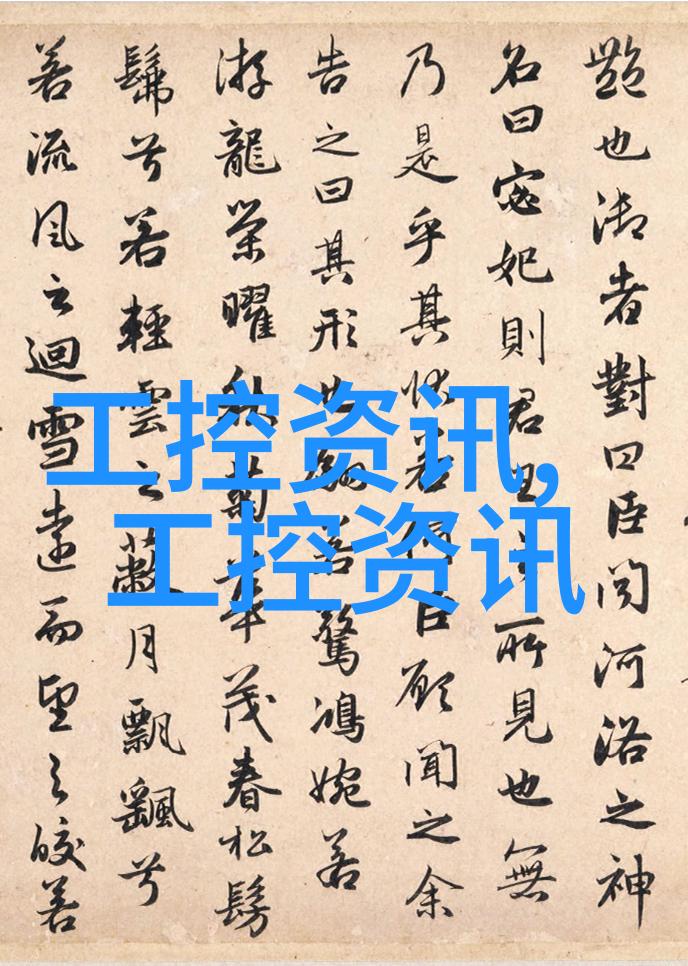 艷也御者對曰臣聞河洛之神
名曰宓妃則君王之所見也無
乃是乎其狀若何臣願聞之余
告之曰其形也翩若驚鴻婉若
游龍榮曜秋菊華茂春松髣
髴兮若輕雲之蔽月飄颻兮
若流風之迴雪遠而望之皎若
工控资讯,
工控资讯